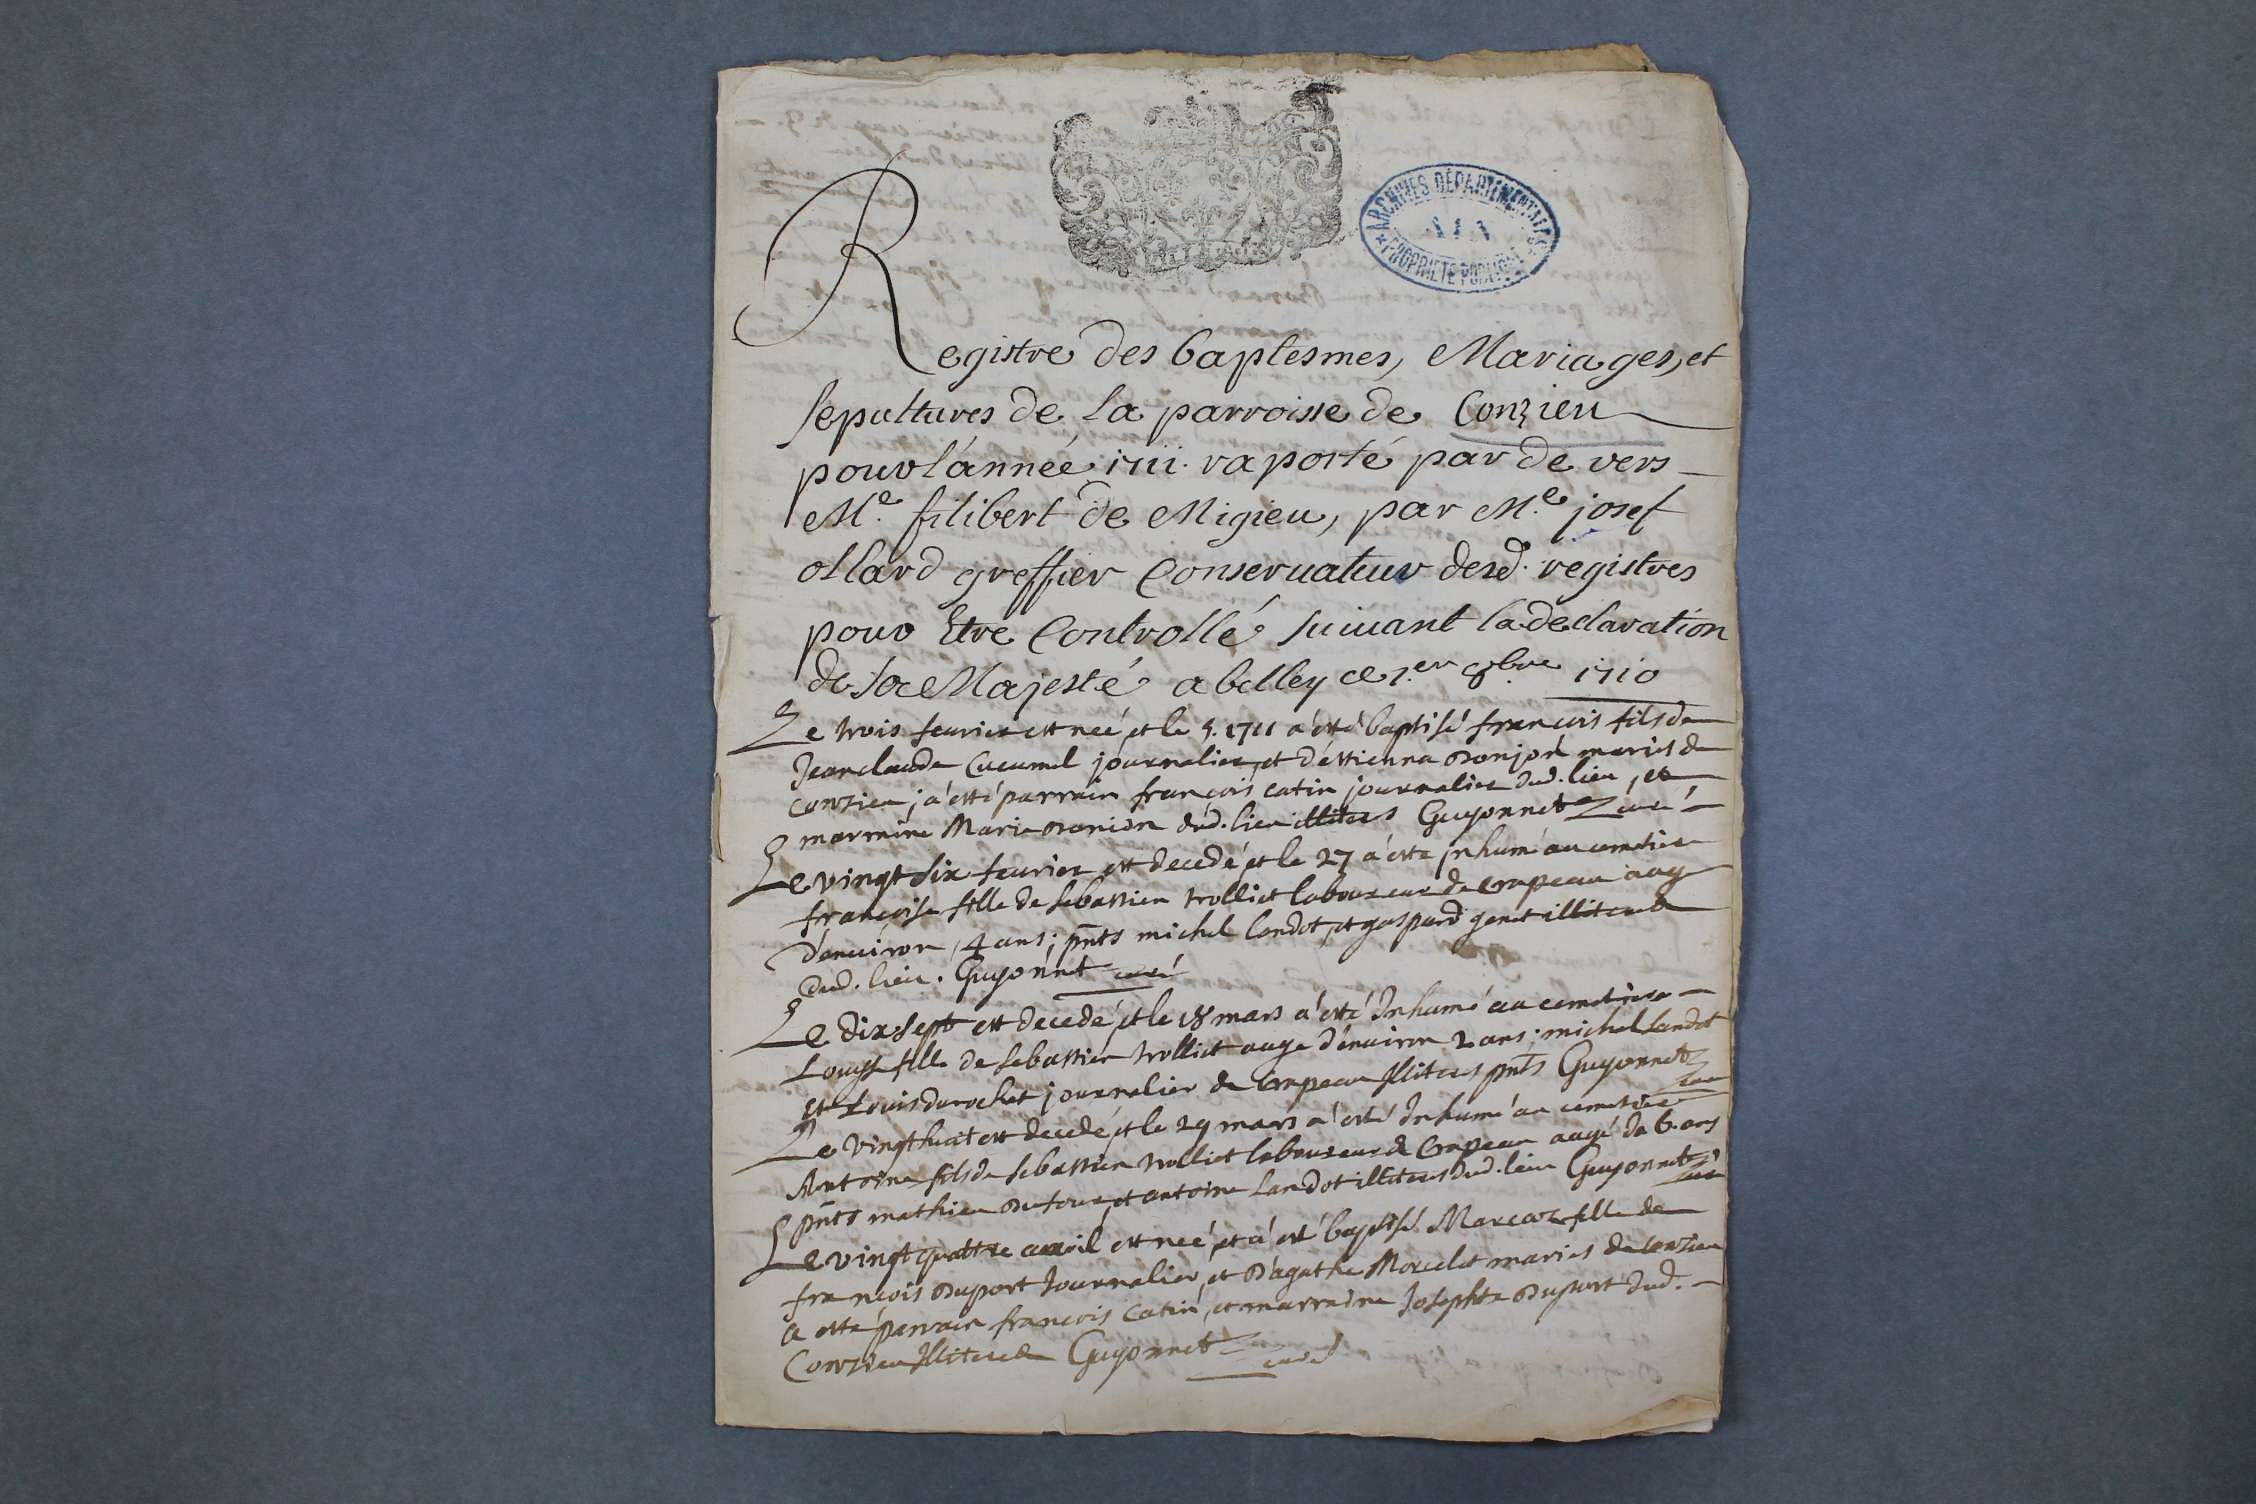 ARCHIVES DÉPARTEMENTALES
AIN
PROPRIÉTÉ PUBLIQUE
Registre des baptesmes, Mariages, et
sepultures de la parroisse de Conzieu
pour l'année 1711. raporté par de vers
Me. filibert de Migieu, par Me. josef
ollard greffier Conseruateur desd. registres
pour Etre Controllé suiuant la declaration
de sa Majesté a belley ce 1.er 8.bre 1710
Le trois feurier est neé et le 5. 1711 a esté baptisé françois fils de
Jean claude Cucumel journalier, et d'estienna bonjon mariés de
conzieu; a esté parrain françois catin journalier dud. lieu, et
marraine Marie dud. lieu illiteres Guyonnet curé
Le vingt six feurier est decedé et le 27 a esté jnhumé au cemetiere
françoise fille de sebastien trolliet laboureur de crapeau aage
d'enuiron 4 ans; pnts michel landot, et gaspard genet illiteres
dud. lieu. Guyonnet curé
Le dix sept est decedé et le 18 mars a esté Inhumé au cemetiere
Louyse fille de sebastien trolliet aage d'enuiron 2 ans; michel landot
et Louis durochet journalier de crapeau Illiteres pnts Guyonnet curé
Le vingt huit est decedé et le 29 mars a esté Inhumé au cemetiere
Antoine fils de sebastien trolliet laboureur de Crapeau aagé de 6. ans
pnts mathieu dufour, et antoine landot illiteres dud. lieu Guyonnet curé
Le vingt quattre auril est neé et a esté baptisé fille de
françois duport Journalier, et d'agathe Morcelet mariés de conzieu
a esté parrain françois catin, et marraine Josephte duport dud.
Conzieu Illiteres Guyonnet curé